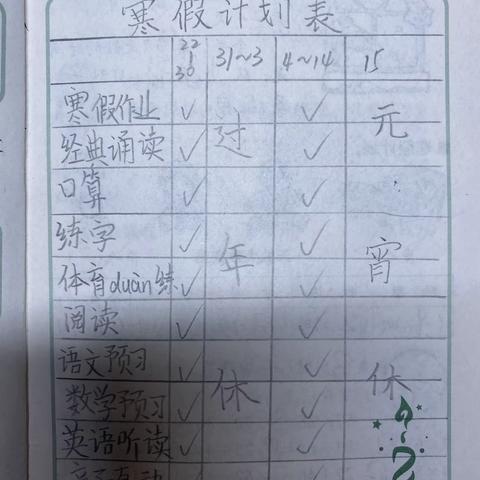 寒假计划表
22~30 31~3 4~14 15
寒假作业 ✓ 过 ✓ 元
经典诵读 ✓ ✓
口算 ✓ ✓
练字 ✓ ✓
体育duàn练 ✓ 年 ✓ 宵
阅读 ✓ ✓
语文预习 ✓ ✓
数学预习 ✓ 休 ✓ 休
英语听读 ✓ ✓